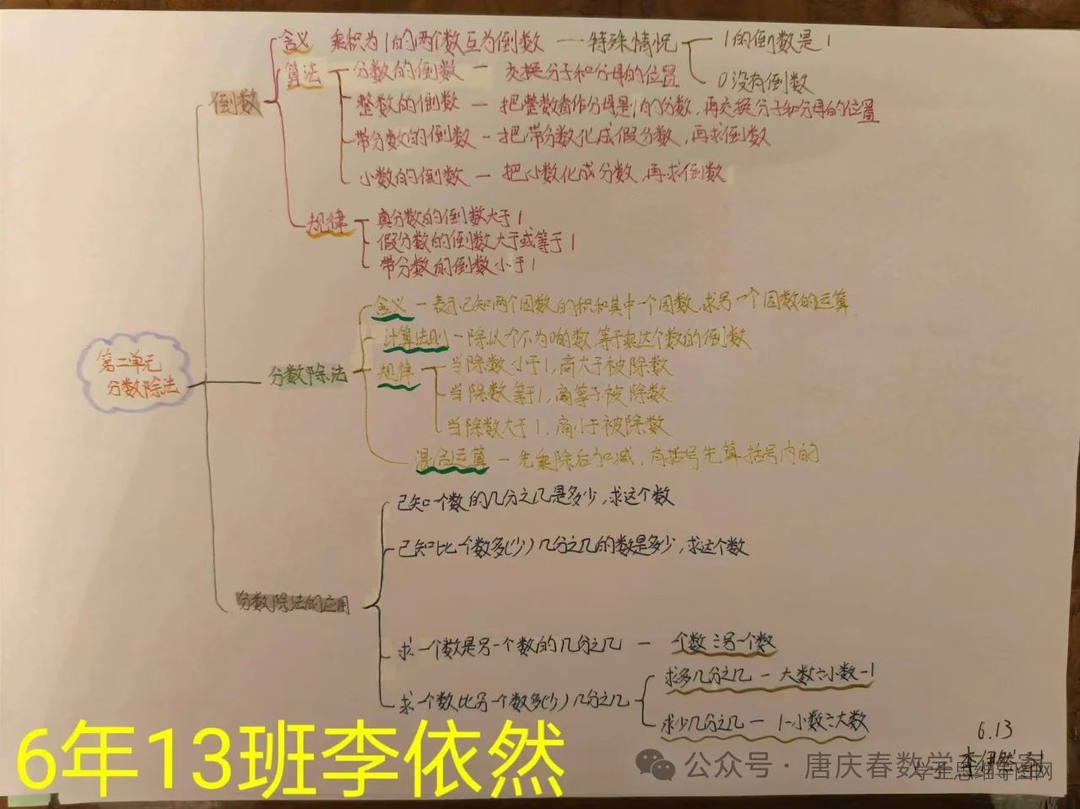 含义 乘积为1的两个数互为倒数 — 特殊情况 1的倒数是1
0没有倒数
倒数
算法 分数的倒数 — 交换分子和分母的位置
整数的倒数 — 把整数看作分母是1的分数,再交换分子和分母的位置
带分数的倒数 — 把带分数化成假分数,再求倒数
小数的倒数 — 把小数化成分数,再求倒数
规律 真分数的倒数大于1
假分数的倒数大于或等于1
带分数的倒数小于1
第二单元
分数除法
分数除法
含义 — 表示已知两个因数的积和其中一个因数,求另一个因数的运算
计算法则 — 除以个不为0的数,等于乘这个数的倒数
规律 当除数小于1,商大于被除数
当除数等于1,商等于被除数
当除数大于1,商小于被除数
混合运算 — 先乘除后加减,有括号先算括号内的
分数除法的应用
已知一个数的几分之几是多少,求这个数
已知比个数多(少)几分之几的数是多少,求这个数
求一个数是另一个数的几分之几 — 一个数÷另一个数
求一个数比另一个数多(少)几分之几 求多几分之几 — 大数÷小数-1
求少几分之几 — 1-小数÷大数
6.13
李伊然
6年13班李依然
公众号·唐庆春数学
学生思维导图网